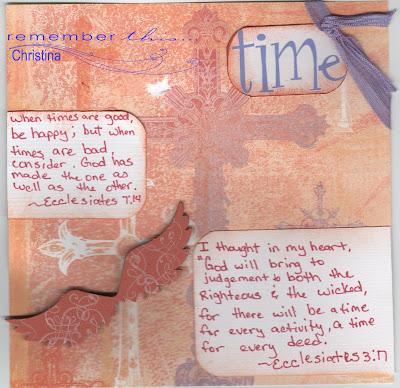 remember this...
Christina
time
When times are good,
be happy; but when
times are bad,
consider. God has
made the one as
well as the other.
~Ecclesiates 7:14
I thought in my heart,
"God will bring to
judgement both the
Righteous & the wicked,
for there will be a time
for every activity, a time
for every deed.
~Ecclesiates 3:17